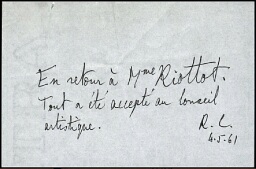 En retour à Mme Riottot.
Tout a été accepté au Conseil
artistique.
R. C.
4.5.61